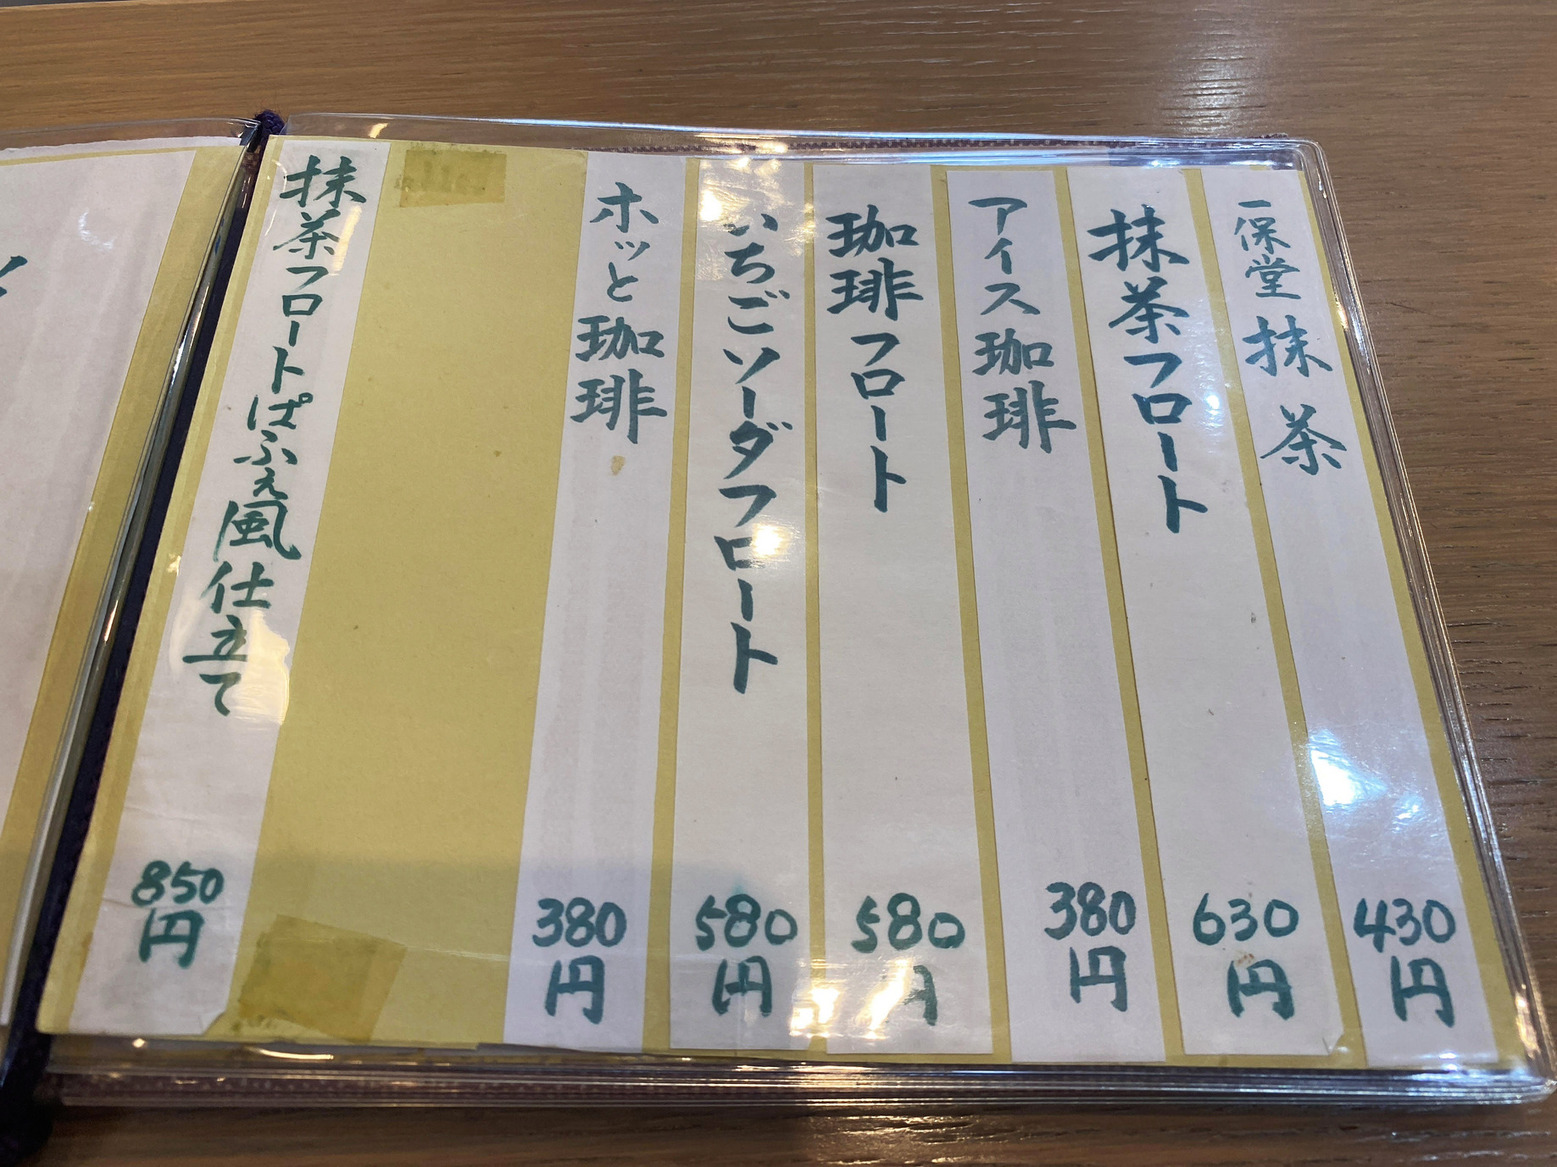 一保堂抹茶
430円
抹茶フロート
630円
アイス珈琲
380円
珈琲フロート
580円
いちごソーダフロート
580円
ホッと珈琲
380円
抹茶フロートぱふぇ風仕立て
850円